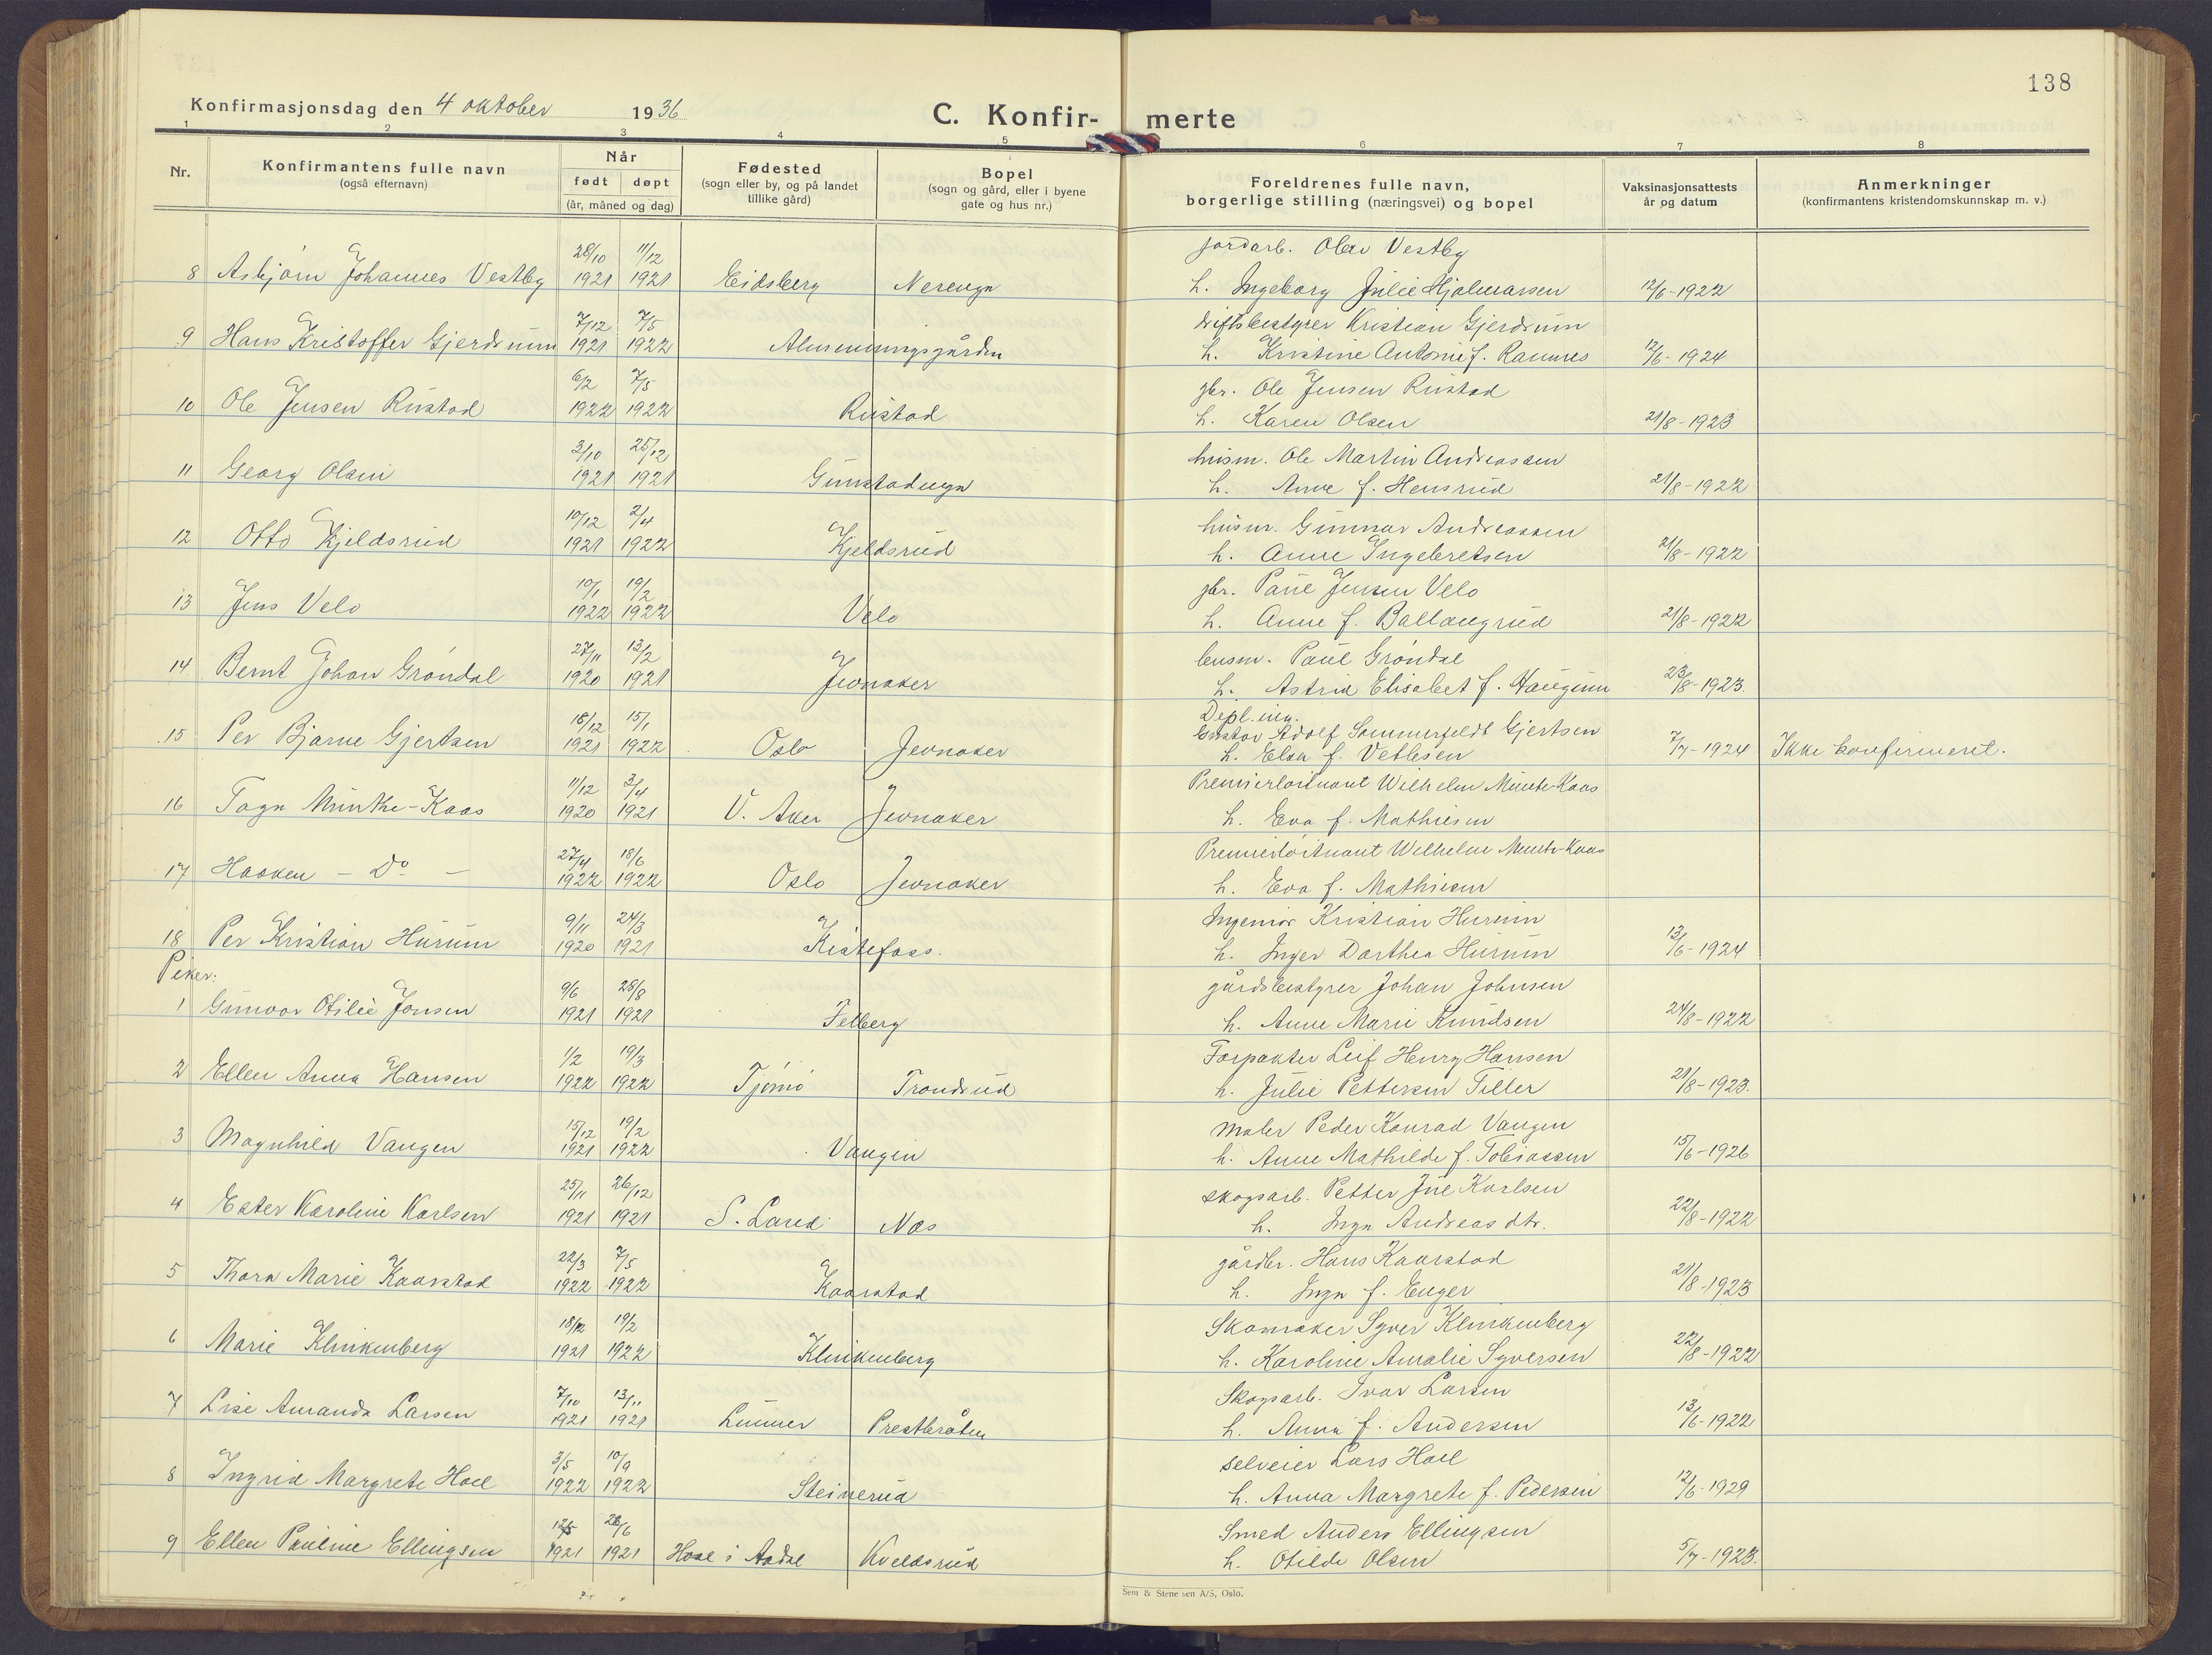 138
Konfirmasjonsdag den 4 oktober 1936
C. Konfir- merte
1 2 3 4 5 6 7 8
Nr.
Konfirmantens fulle navn
(også efternavn)
Når
født døpt
(år, måned og dag)
Fødested
(sogn eller by, og på landet
tillike gård)
Bopel
(sogn og gård, eller i byene
gate og hus nr.)
Foreldrenes fulle navn,
borgerlige stilling (næringsvei) og bopel
Vaksinasjonsattests
år og datum
Anmerkninger
(konfirmantens kristendomskunnskap m. v.)
28/10 11/12 jordarb. Olav Vestby
8 Asbjørn Johannes Vestby 1921 1921 Eidsberg h. Ingeborg Julie Hjalmarsen 12/6-1922
7/12 7/5 driftsbestyrer Kristian Gjerdrum
9 Hans Kristoffer Gjerdrum 1921 1922 Almenningsgården h. Kristine Antonie f. Ramnes 12/6-1924
6/2 7/5 gbr. Ole Jensen Rustad
10 Ole Jensen Rustad 1922 1922 Rustad h. Karen Olsen 21/8-1923
3/10 25/12 husm. Ole Martin Andreassen
11 Georg Olsen 1921 1921 h. Anne f. Hensrud 21/8-1922
10/12 2/4 husm. Gunnar Andreassen
12 Otto Kjeldsrud 1921 1922 Kjeldsrud h. Anne Ingebretsen 21/8-1922
10/1 19/2 gbr. Paul Jensen Velo
13 Jens Velo 1922 1922 Velo h. Anne f. Ballangrud 21/8-1922
27/11 13/2 lensm. Paul Grøndal
14 Bernt Johan Grøndal 1920 1921 Jevnaker h. Astrid Elisabet f. Haugen 23/8-1923.
Dipl. ing.
18/12 15/1 Gustav Adolf Sommerfeldt Gjertsen
15 Per Bjarne Gjertsen 1921 1922 Oslo Jevnaker h. Elsa f. Vetlesen 7/7-1924 Ikke konfirmeret.
11/12 3/4 Premierløitnant Wilhelm Munthe-Kaas
16 Tage Munthe-Kaas 1920 1921 V. Aker Jevnaker h. Eva f. Mathiesen
27/4 18/6 Premierløitnant Wilhelm Munthe-Kaas
17 Haaken - Do - 1922 1922 Oslo Jevnaker h. Eva f. Mathiesen
9/11 24/3 Ingeniør Kristian Hurum
18 Per Kristian Hurum 1920 1921 Kistefoss. h. Inger Dorthea Hurum 13/6-1924
Piker:
9/6 28/8 gårdsbestyrer Johan Johnsen
1 Gunvor Otilie Jonsen 1921 1921 Felberg h. Anne Marie Knudsen 24/8-1922
1/2 19/3 Forpakter Leif Henry Hansen
2 Ellen Anna Hansen 1922 1922 Tjømø Trondrud h. Julie Pettersen Tiller 21/8-1923.
15/12 19/2 maler Peder Konrad Vangen
3 Magnhild Vangen 1921 1922 Vangen h. Anne Mathilde f. Tobiassen 15/6-1926
25/11 26/12 skogsarb. Petter Jul Karlsen
4 Ester Karoline Karlsen 1921 1921 S. Land Næs h. Inga Andreasdtr. 22/8-1922
22/3 7/5 gårdbr. Hans Kaarstad
5 Thora Marie Kaarstad 1922 1922 Kaarstad h. Inga f. Enger 21/8-1923
18/12 19/2 Skomaker Syver Klinkenberg
6 Marie Klinkenberg 1921 1922 Klinkenberg h. Karoline Amalie Syversen 22/8-1922
7/10 13/11 Skogsarb. Ivar Larsen
7 Lise Amanda Larsen 1921 1921 Lunner Prestbråten h. Anna f. Andersen 13/6-1922
3/5 10/9 selveier Lars Hoel
8 Ingrid Margrete Hoel 1922 1922 Steinerud h. Anna Margrete f. Pedersen 12/6-1929
12/5 26/6 Smed Anders Ellingsen
9 Ellen Pauline Ellingsen 1921 1921 Hval i Aadal Kveldsrud h. Otilde Olsen 5/7-1923.
Sem & Stenersen A/S, Oslo.